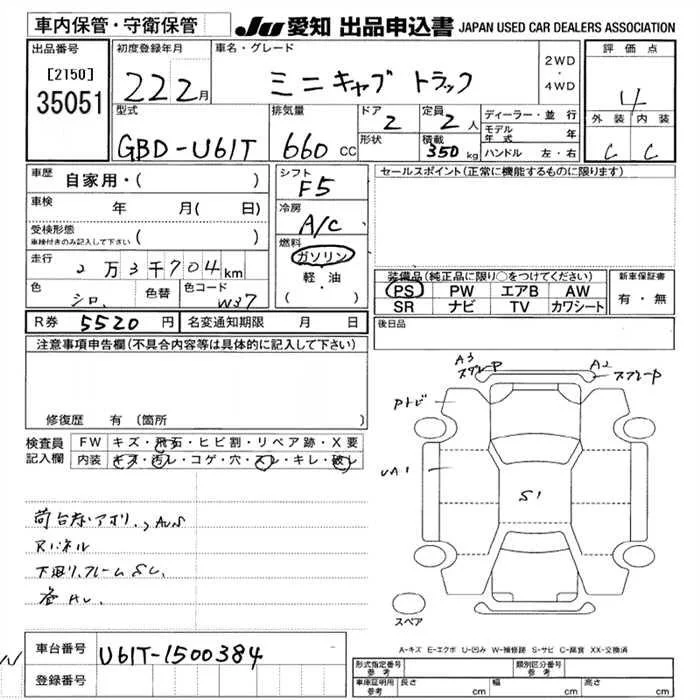 車内保管・守衛保管
JU 愛知 出品申込書 JAPAN USED CAR DEALERS ASSOCIATION
出品番号
[2150]
35051
初度登録年月
22 2月
車名・グレード
ミニキャブ トラック
2WD
・
4WD
評価点
4
外装 内装
C C
型式
GBD-U61T
排気量
660 CC
ドア
2
形状
定員
2人
積載
350 kg
ディーラー・並行
モデル年式 年
ハンドル 左・右
車歴
自家用・( )
車検
年 月( 日)
受検形態
車検付きのみ記入して下さい ( )
走行
2万3千704km
色
シロ
色替
色コード
W37
シフト
F5
冷房
A/C
燃料
ガソリン
軽・油
( ・ )
セールスポイント(正常に機能するものに限ります)
装備品(純正品に限り○をつけてください)
PS PW エアB AW
SR ナビ TV カワシート
新車保証書
有・無
R券 5520円
名変通知期限 月 日
後日品
注意事項申告欄(不具合内容等は具体的に記入して下さい)
修復歴 有 (箇所
検査員
記入欄
FW キズ・飛石・ヒビ割・リペア跡・X要
内装 キズ・汚レ・コゲ・穴・スレ・キレ・破レ
A3
A2
S1
スペア
A-キズ E-エクボ U-凹み W-補修跡 S-サビ C-腐食 XX-交換済
車台番号 U61T-1500384
登録番号
形式指定番号
参考
類別区分番号
参考
車庫証明用
参考
長さ cm 幅 cm 高さ cm